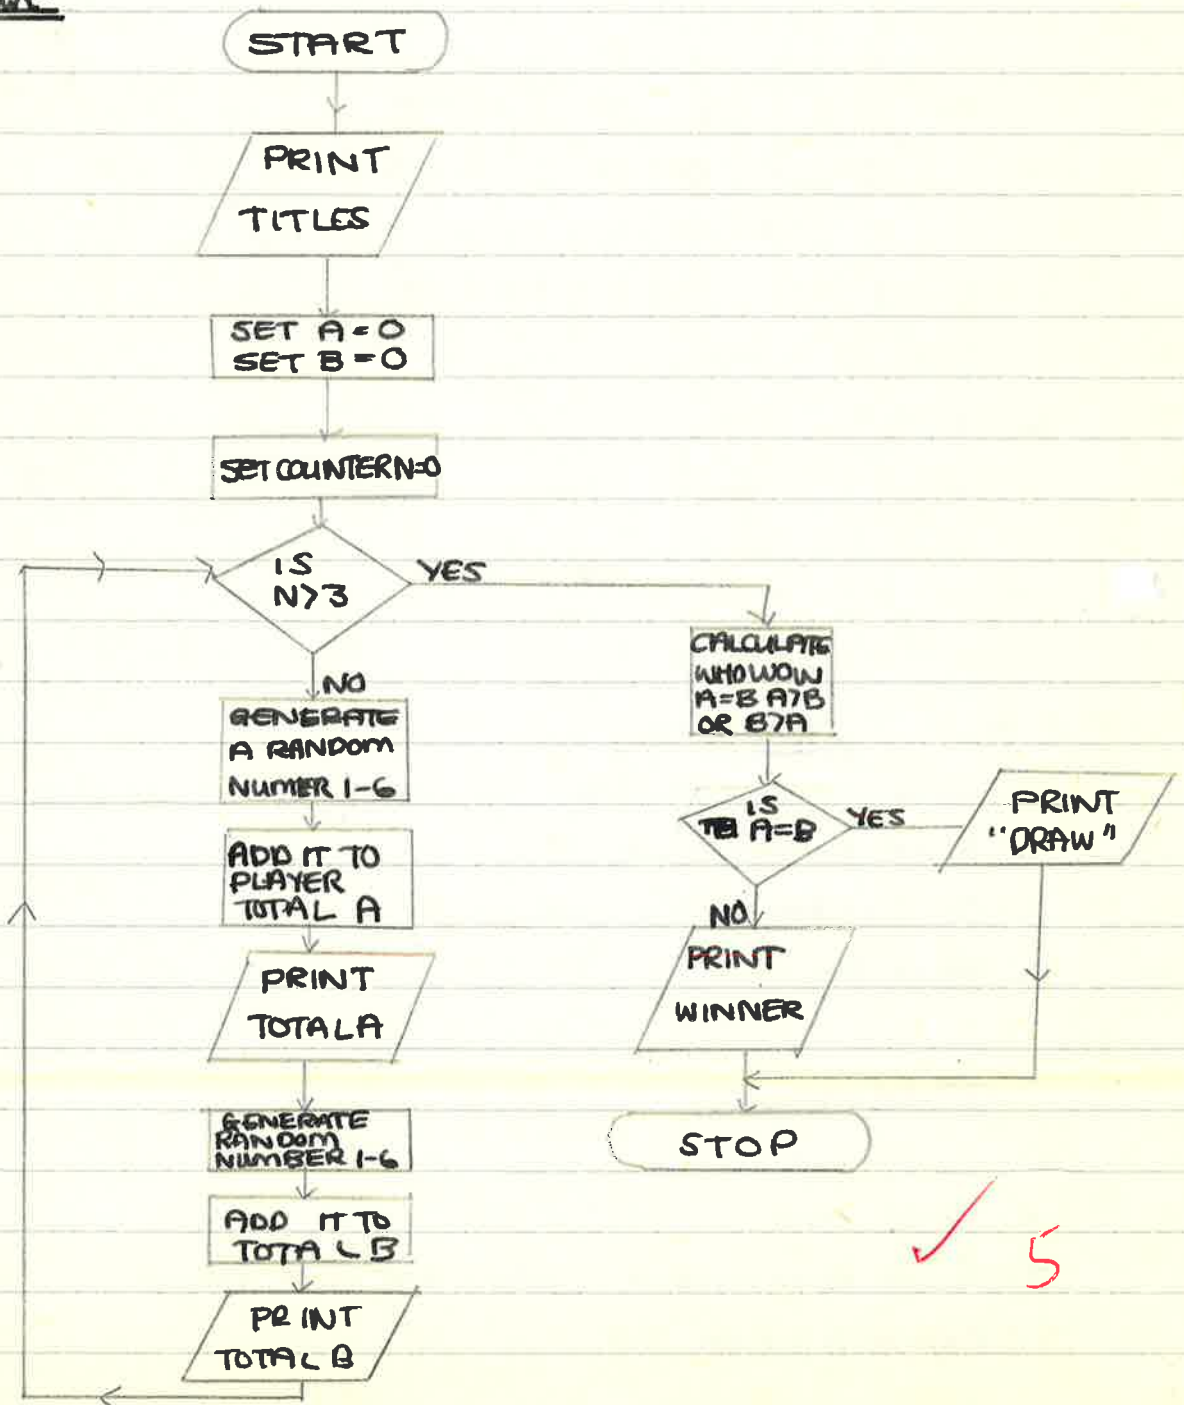 START
PRINT
TITLES
SET A = 0
SET B = 0
SET COUNTER N=0
IS
N>3
YES
NO
GENERATE
A RANDOM
NUMER 1-6
ADD IT TO
PLAYER
TOTAL A
PRINT
TOTAL A
GENERATE
RANDOM
NUMBER 1-6
ADD IT TO
TOTAL B
PRINT
TOTAL B
CALCULATE
WHO WON
A=B A>B
OR B>A
IS
A=B
YES
PRINT
"DRAW"
NO
PRINT
WINNER
STOP
5